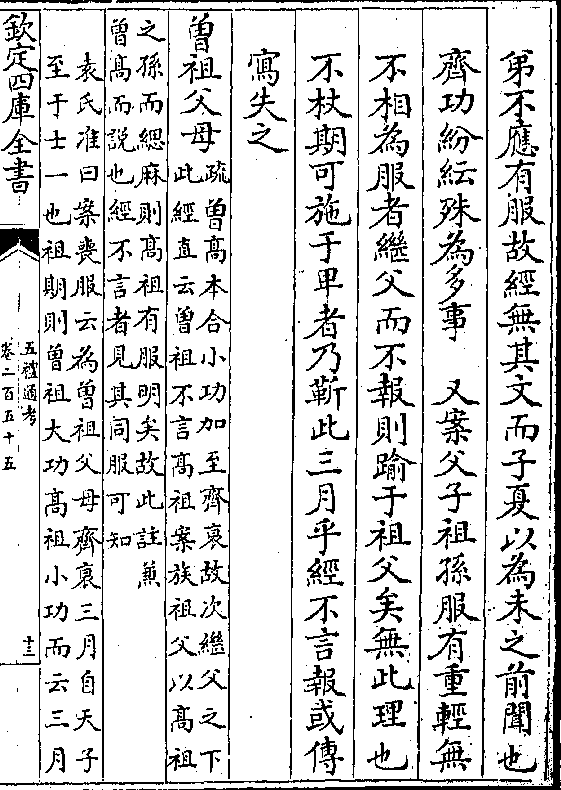 第不應有服故經無其文而子夏以為未之前聞也
齊功紛紜殊為多事　又案父子祖孫服有重輕無
不相為服者繼父而不報則踰于祖父矣無此理也
不杖期可施于卑者乃靳此三月乎經不言報或傳
寫失之
曾祖父母疏曾高本合小功加至齊衰故次繼父之下
此經直云曾祖不言高祖案族祖父以高祖
之孫而緦麻則高祖有服明矣故此註兼
曾高而說也經不言者見其同服可知
袁氏准曰案喪服云為曾祖父母齊衰三月自天子
至于士一也祖期則曾祖大功高祖小功而云三月
欽定四庫全書
五禮通考
卷二百五十五
十三